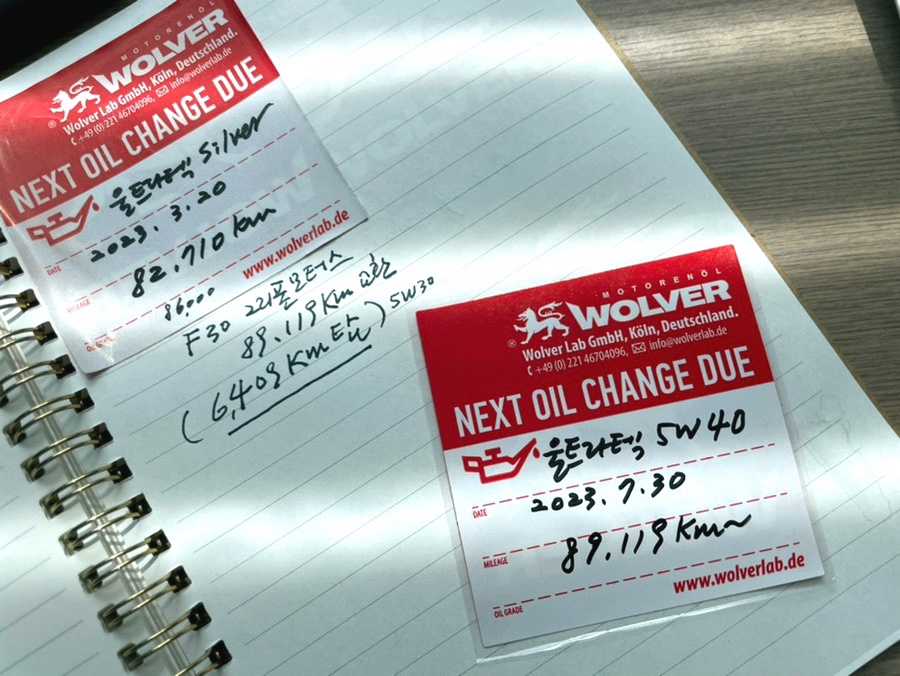 MOTORENÖL
WOLVER
Wolver Lab GmbH, Köln, Deutschland.
+49 (0)221 46704096, info@wolverlab.de
NEXT OIL CHANGE DUE
울트라텍 Silver
2023. 3. 20
DATE
82.710 km
86,000
OIL GRADE
www.wolverlab.de
F30 2리풀모터스
89.119 Km 교환
(6,409 Km 탐) 5W30
MOTORENÖL
WOLVER
Wolver Lab GmbH, Köln, Deutschland.
+49 (0) 221 46704096, info@wolverlab.de
NEXT OIL CHANGE DUE
울트라텍 5W40
DATE
2023. 7. 30
MILEAGE
89.119 Km~
OIL GRADE
www.wolverlab.de